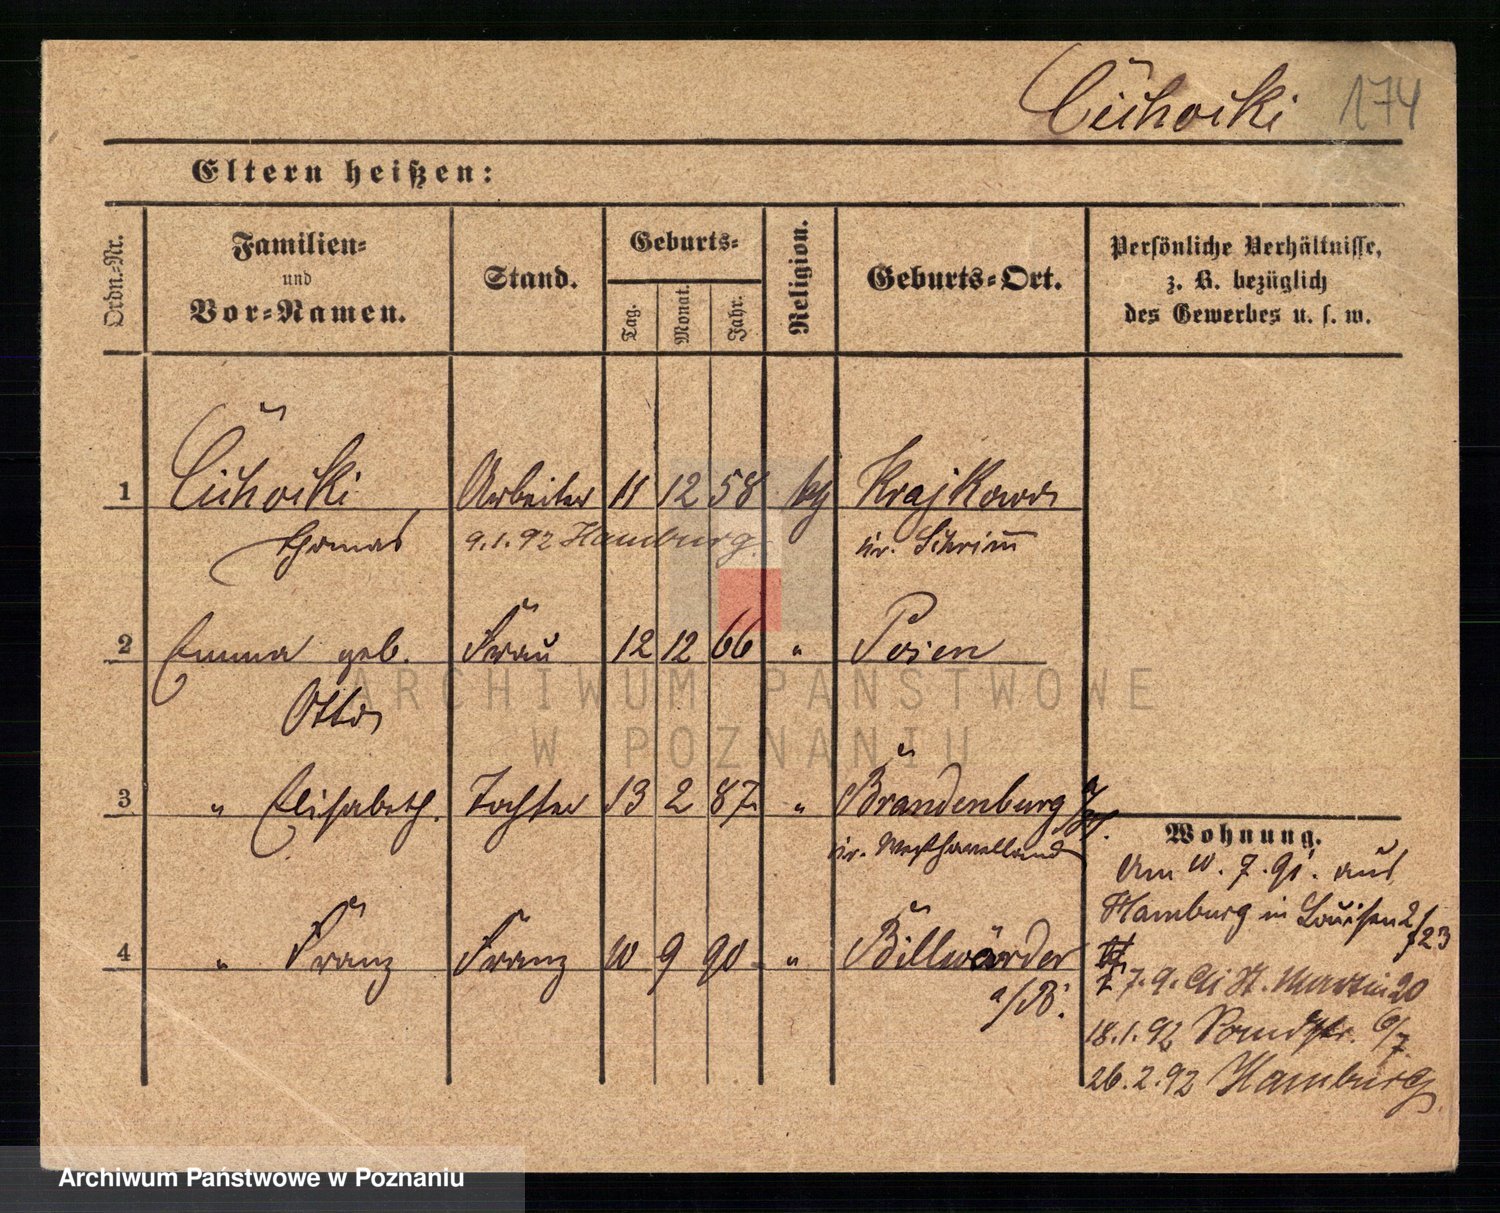 Cichocki 174
Eltern heißen:
Ordn.-Nr.
Familien-
und
Vor-Namen.
Stand.
Geburts-
Tag.
Monat.
Jahr.
Religion.
Geburts-Ort.
Persönliche Verhältnisse,
z. B. bezüglich
des Gewerbes u. s. w.
1 Cichocki Arbeiter 11 12 58 Krajkowo
Thomas 9.1.92 Hamburg. Kr. Schrimm
2 Emma geb. Frau 12 12 66 " Posen
Otto
3 " Elisabeth. Tochter 13 2 87. " Brandenburg a/H.
Kr. Westhavelland
4 " Franz Franz 10 9 90. " Billwärder
a/B.
Wohnung.
Am 10. 7. 91. aus
Hamburg in Louisen 2/23
7. 9. 91 St. Martin 20
18.1.92 6/7.
26.2.92 Hamburg
ARCHIWUM PAŃSTWOWE
W POZNANIU
Archiwum Państwowe w Poznaniu